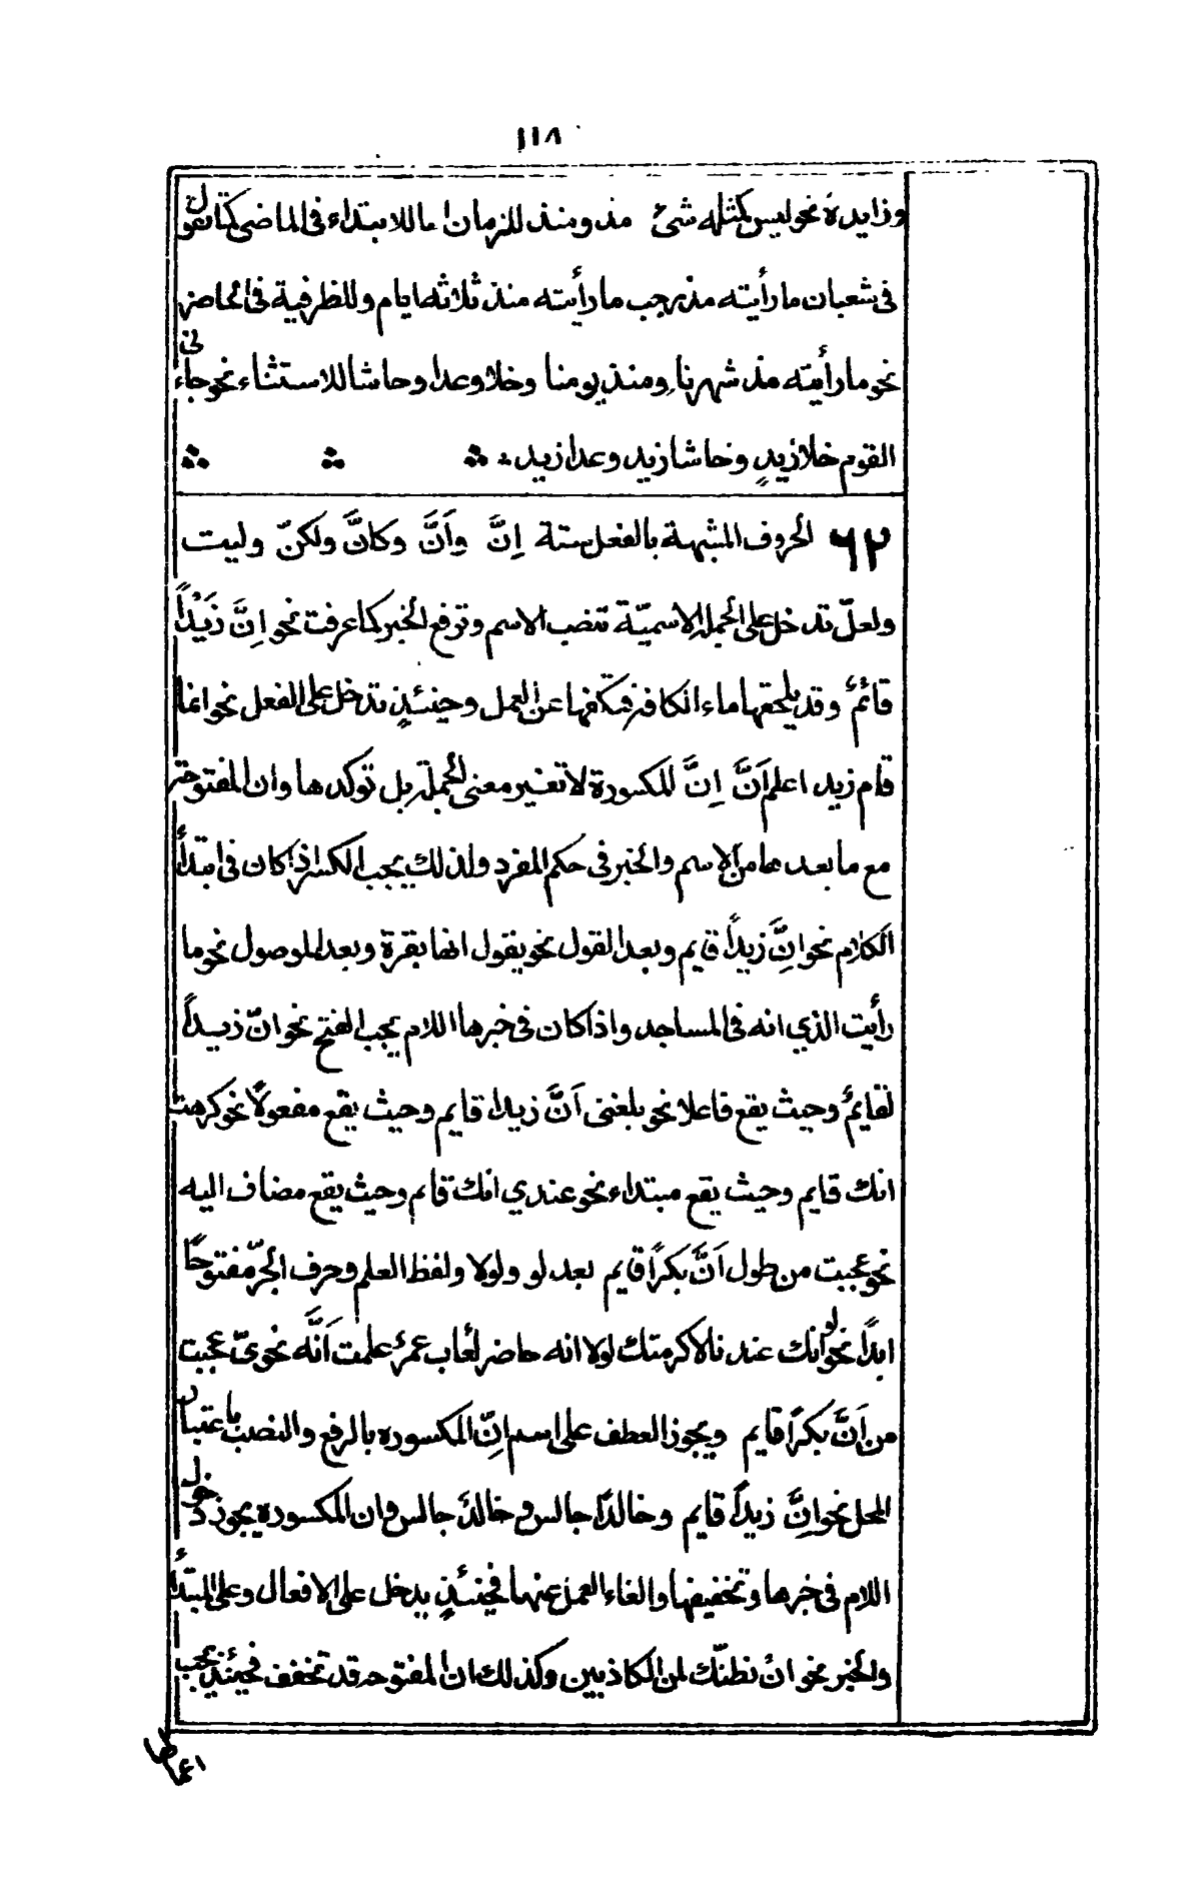 ١١٨
وزايدة نحو ليس كمثله شئ مذ ومنذ للزمان اما للابتداء فى الماضى كما تقول
فى شعبان ما رأيته مذ رجب ما رأيته منذ ثلاثه ايام وللظرفية فى الحاضر
نحو ما رأيته مذ شهرنا ومنذ يومنا وخلا وعدا وحاشا للاستثناء نحو جاءنى
القوم خلا زيدٍ وحاشا زيد وعدا زيد
٦٢ الحروف المشبهة بالفعل ستة اِنَّ واَنَّ وكانَّ ولكنّ وليت
ولعلّ تدخل على الجملة الاسميّة تنصب الاسم وترفع الخبر كما عرفت نحو اِنَّ زَيْداً
قائمٌ وقد يلحقها ماء الكافة فتكفها عن العمل وحينئذٍ تدخل على الفعل نحو انما
قام زيد اعلم اَنَّ اِنَّ المكسورة لا تغير معنى الجملة بل توكدها وان المفتوحة
مع ما بعدها من الاسم والخبر فى حكم المفرد ولذلك يجب الكسر اذا كان فى ابتدأ
الكلام نحو اِنَّ زيداً قايم وبعد القول نحو يقول انها بقرة وبعد الموصول نحو ما
رأيت الذي انه فى المساجد واذا كان فى خبرها اللام يجب الفتح نحو انّ زيداً
لقايمٌ وحيث يقع فاعلا نحو بلغنى اَنَّ زيدا قايم وحيث يقع مفعولاً نحو كرهت
انك قايم وحيث يقع مبتداء نحو عندي انك قايم وحيث يقع مضاف اليه
نحو عجبت من طول اَنَّ بكراً قايم بعد لو ولولا ولفظ العلم وحرف الجرّ مفتوحًا
ابداً نحو لو انك عندنا لاكرمتك لولا انه حاضر لغاب عمرٌ علمت اَنَّه نحويّ عجبت
من اَنَّ بكراً قايم ويجوز العطف على اسم اِنّ المكسوره بالرفع والنصب باعتبار
المحل نحو اِنَّ زيداً قايم وخالدًا جالس وخالدٌ جالس وان المكسوره يجوز دخول
اللام فى خبرها وتخفيفها والغاء العمل عنها فحينئذٍ يدخل على الافعال وعلى المبتدأ
والخبر نحو انْ نظنّك لمن الكاذبين وكذلك ان المفتوحه قد تخفف فحينئذ يجب
اعمالها